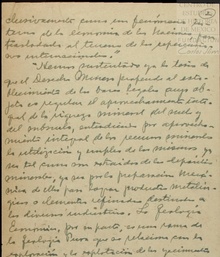 exclusivamente como un fenómeno in-
terno de la economía de las Naciones para
trasladarlo al terreno de las
internacionales"
"Hemos sustentado ya la tesis de
que el Derecho Minero propende al esta-
blecimiento de las bases legales cuyo ob-
jeto es regular el aprovechamiento inte-
gral de la riqueza mineral del suelo y
del subsuelo, entendiendo por aprovecha-
miento integral de los recursos minerales
la extracción y empleo de los mismos ya
sea tal como son extraídos de los depósitos
minerales, ya sea por la preparación
de ellos para lograr productos metalúr-
gicos o elementos refinados destinados a
las diversas industrias. La Geología
Económica, por su parte, es una rama de
la Geología Pura que se relaciona con la
exploración y la explotación de los yacimientos